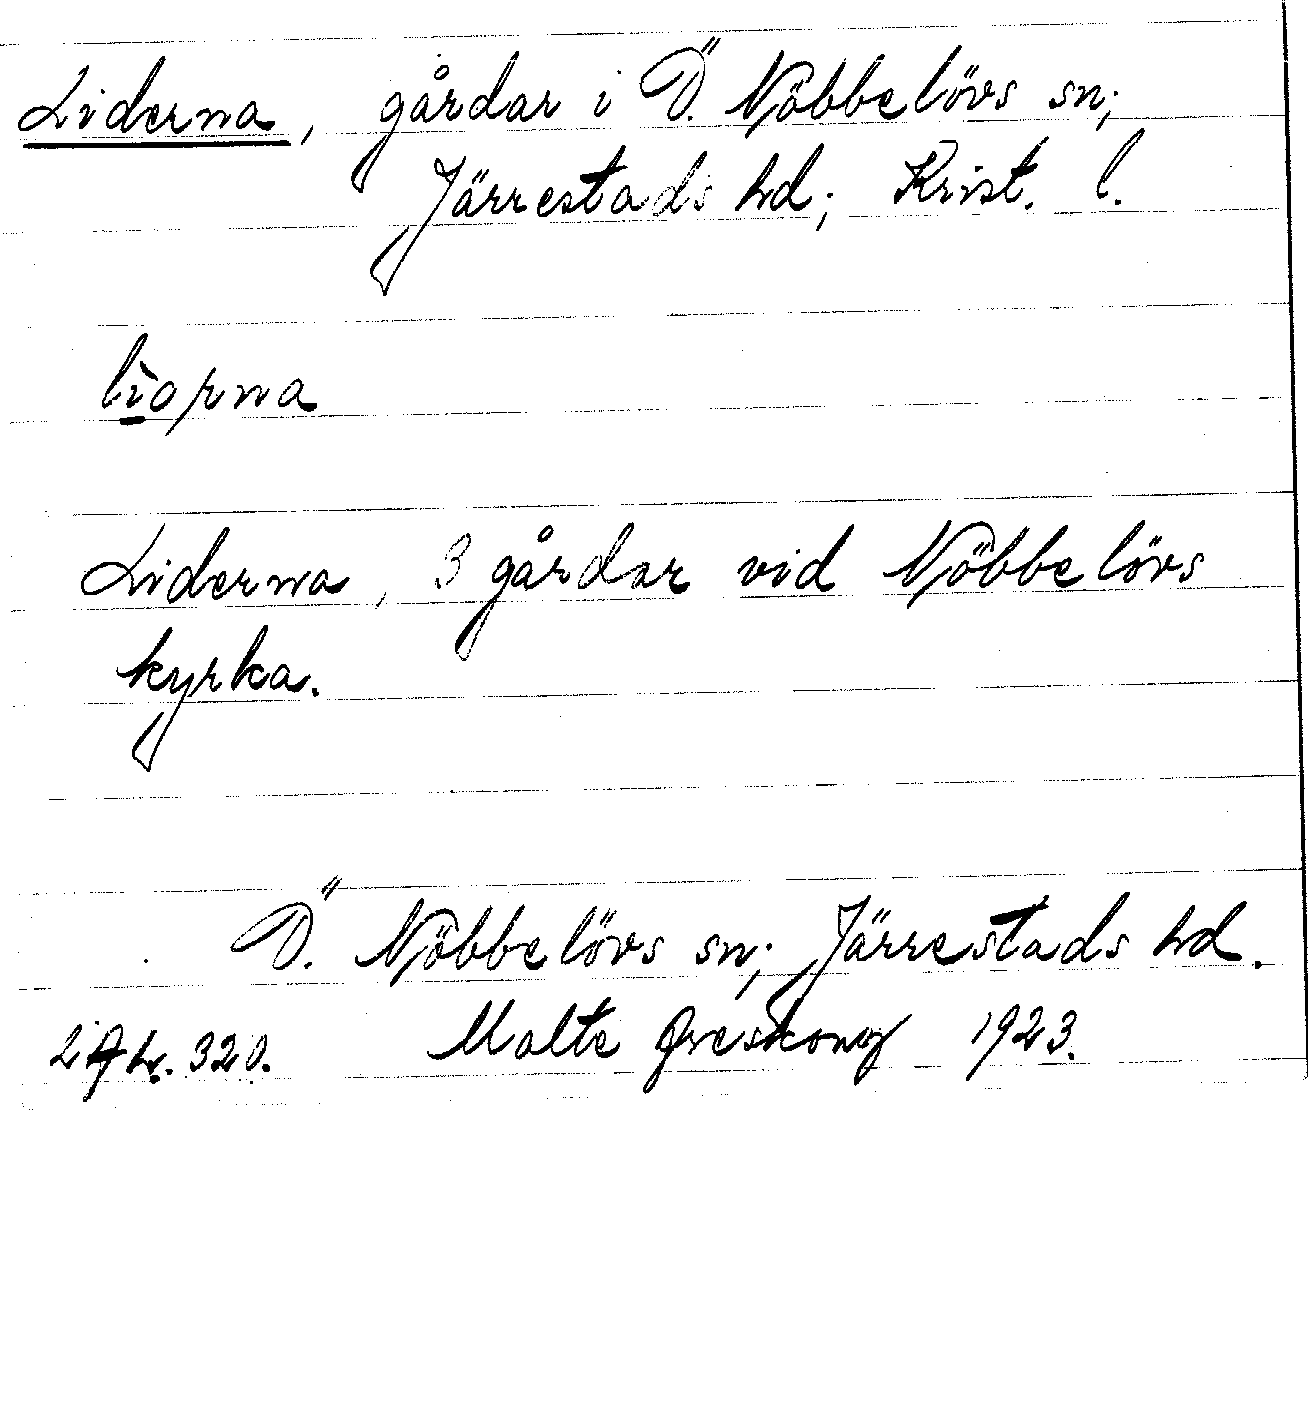 Liderna, gårdar i Ö. Nöbbelövs sn;
Järrestads hd; Krist. l.
lìorna
Liderna, 3 gårdar vid Nöbbelövs
kyrka.
Ö. Nöbbelövs sn; Järrestads hd.
320. Malte Areskoug 1923.